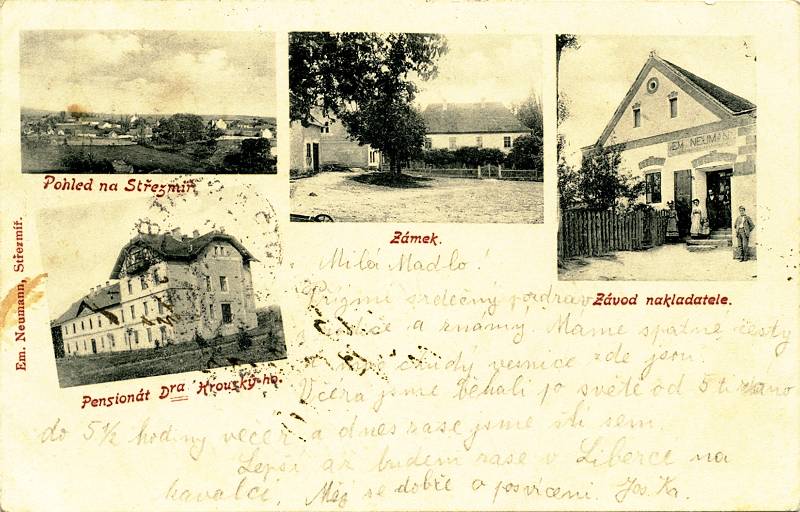 Pohled na Střezmíř.
Zámek.
EM. NEUMANN
Závod nakladatele.
Pensionát Dra Krouský-ho.
Em. Neumann, Střezmíř.
Milá Madlo!
Přijmi srdečný pozdrav
a známý. Máme špatné cesty
a chudý vesnice zde jsou.
Včera jsme běhali po světě od 5 ti ráno
do 5½ hodiny večer a dnes zase jsme šli sem.
Lepší až budem zase v Liberci na
kavalci. Měj se dobře o posvícení. Jos. Kr.